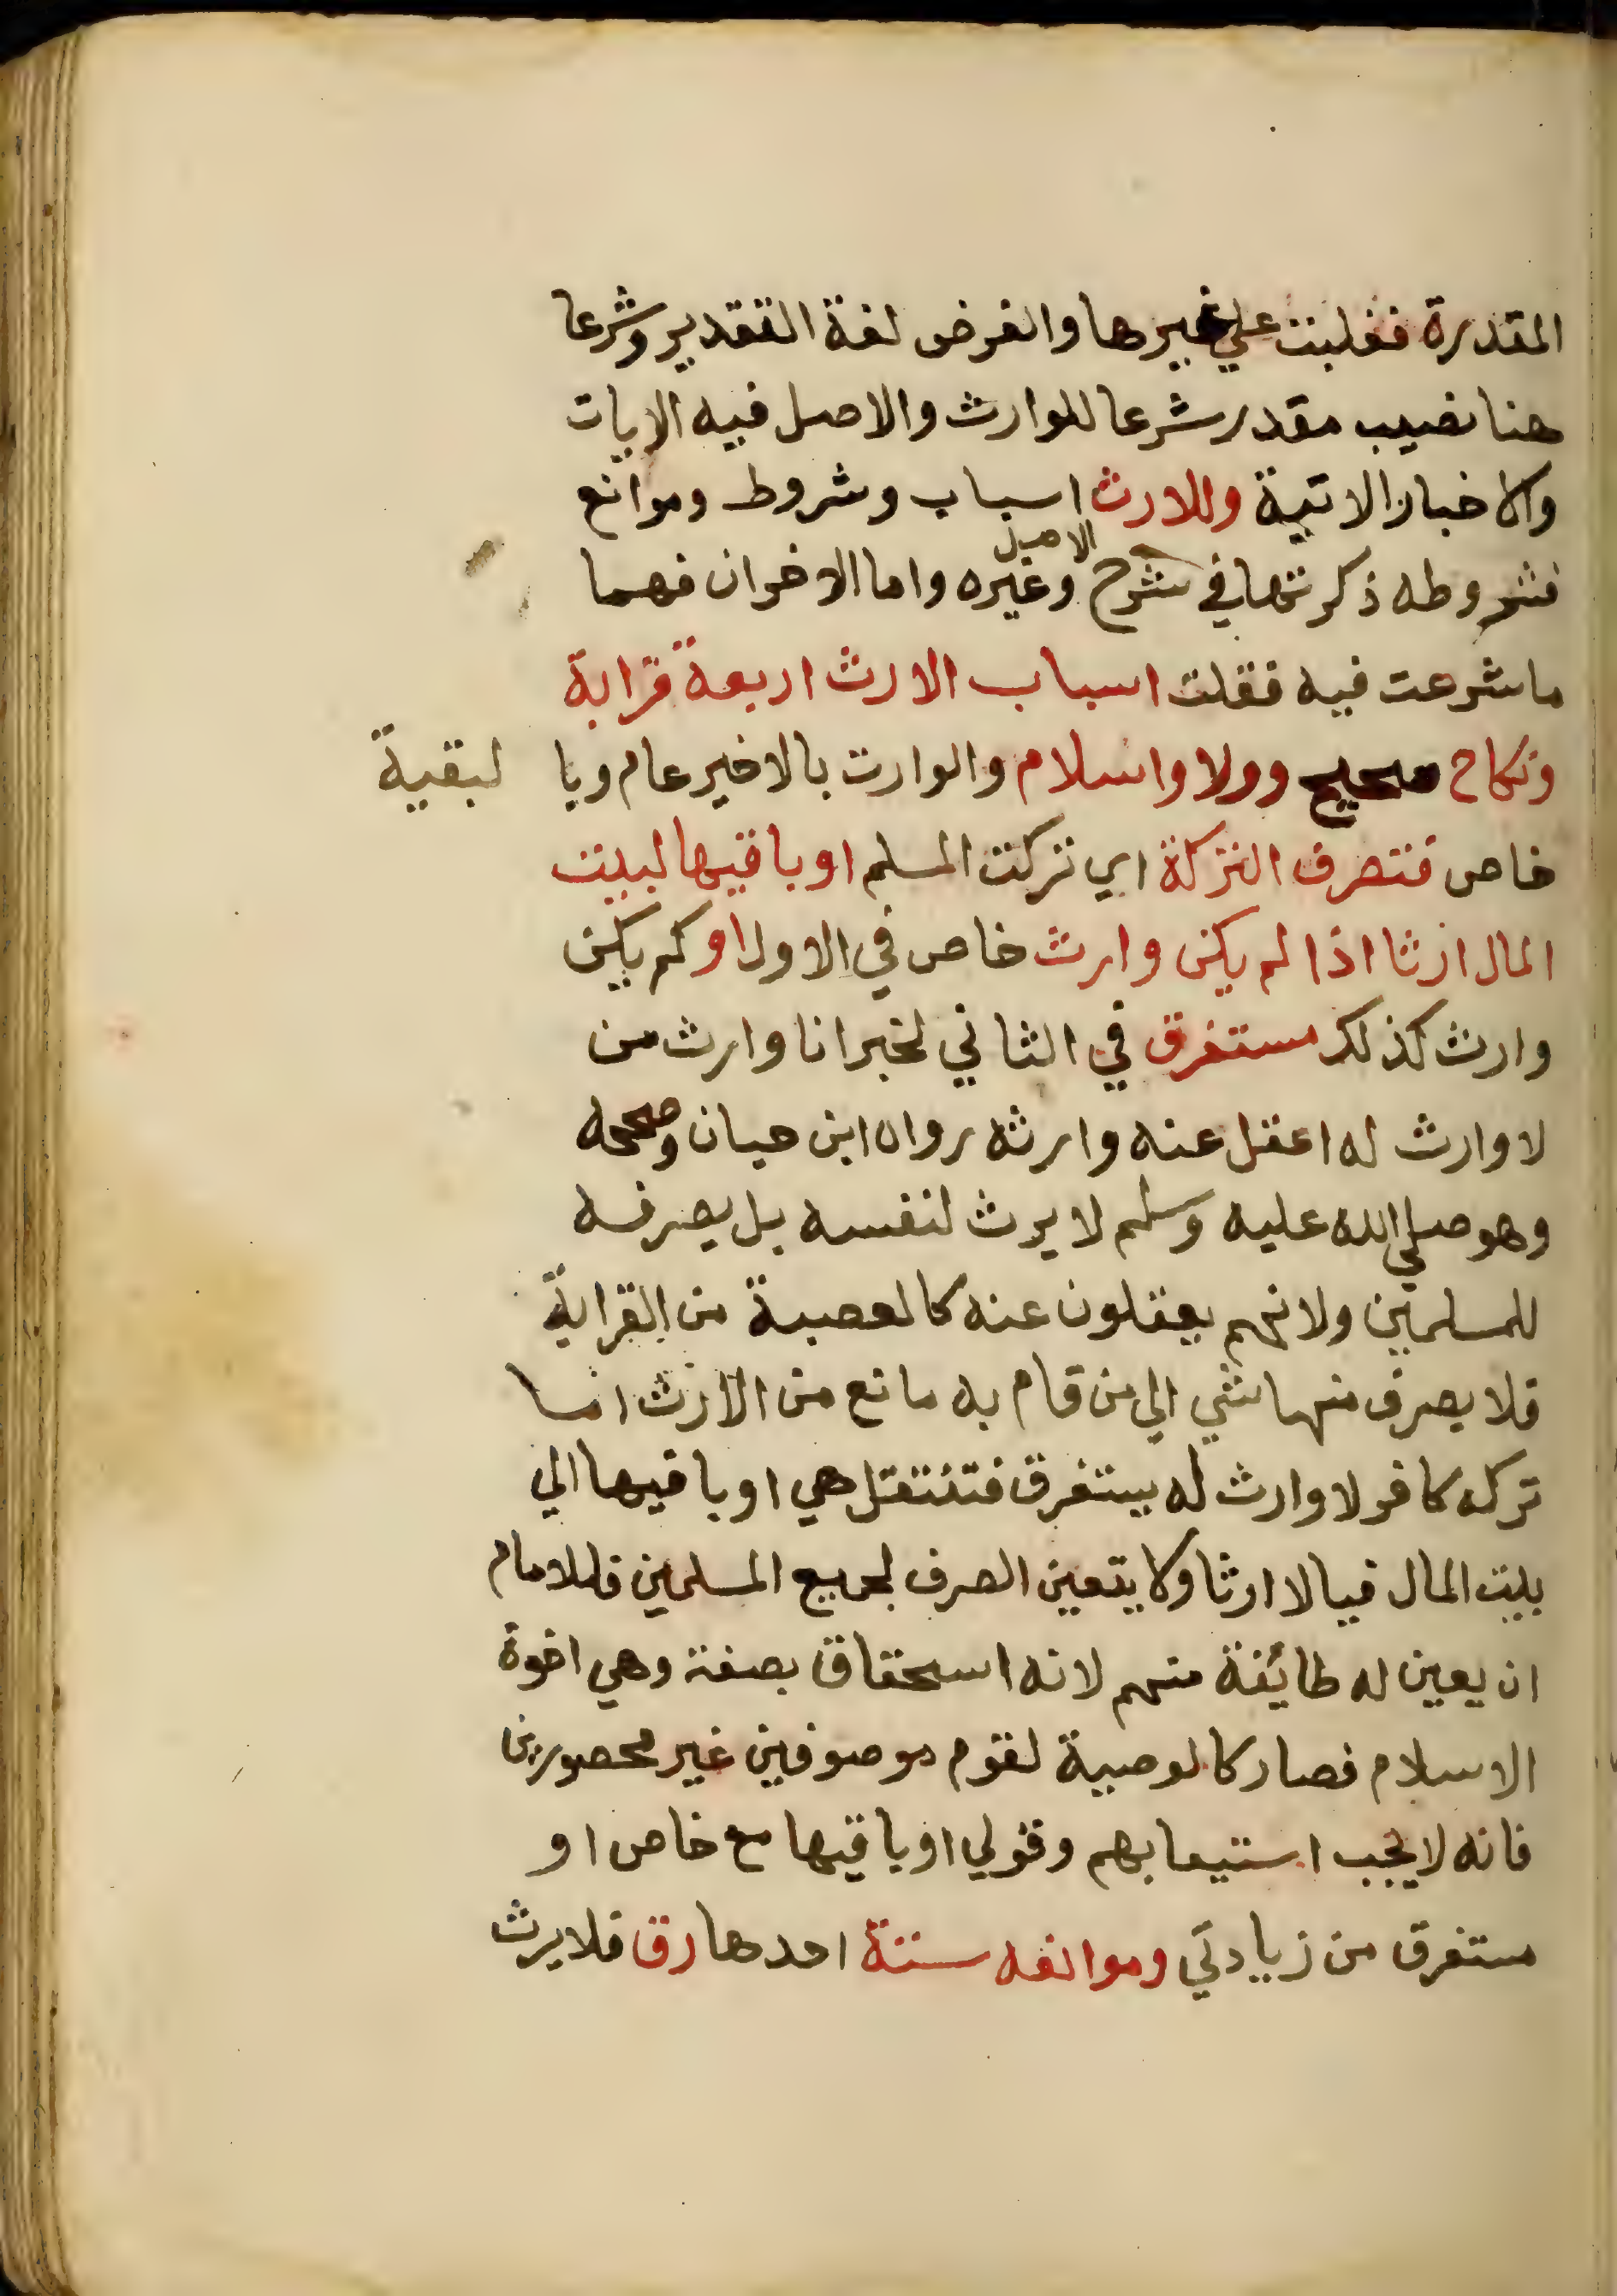 المقدرة فغلبت علي غيرها والفرض لغة التقدير وشرعا
هنا نصيب مقدر شرعا للوارث والاصل فيه الايات
والاخبار الاتية وللارث اسباب وشروط وموانع
فشروطه ذكرتها في شرح الاصل وغيره واما الاخران فهما
ما شرعت فيه فقلت اسباب الارث اربعة قرابة
ونكاح صحيح وولا واسلام والوارث بالاخير عام وبا لبقية
خاص فتصرف التركة اي تركت المسلم او باقيها لبيت
المال ارثا اذا لم يكن وارث خاص في الاول او لم يكن
وارث كذلك مستغرق في الثاني لخبر انا وارث من
لا وارث له اعقل عنه وارثه رواه ابن حبان وصححه
وهو صلي الله عليه وسلم لا يرث لنفسه بل يصرفه
للمسلمين ولانهم يعقلون عنه كالعصبة من القرابة
فلا يصرف منها شي الي من قام به مانع من الارث اما
تركه كافر لا وارث له يستغرق فتنتقل هي او باقيها الي
بيت المال فيا لا ارثا ولا يتعين الصرف لجميع المسلمين فللامام
ان يعين له طائفة منهم لانه استحقاق بصفة وهي اخوة
الاسلام فصار كالوصية لقوم موصوفين غير محصورين
فانه لا يجب استيعابهم وقولي او باقيها مع خاص او
مستغرق من زيادتي وموانعه ستة احدها رق فلا يرث